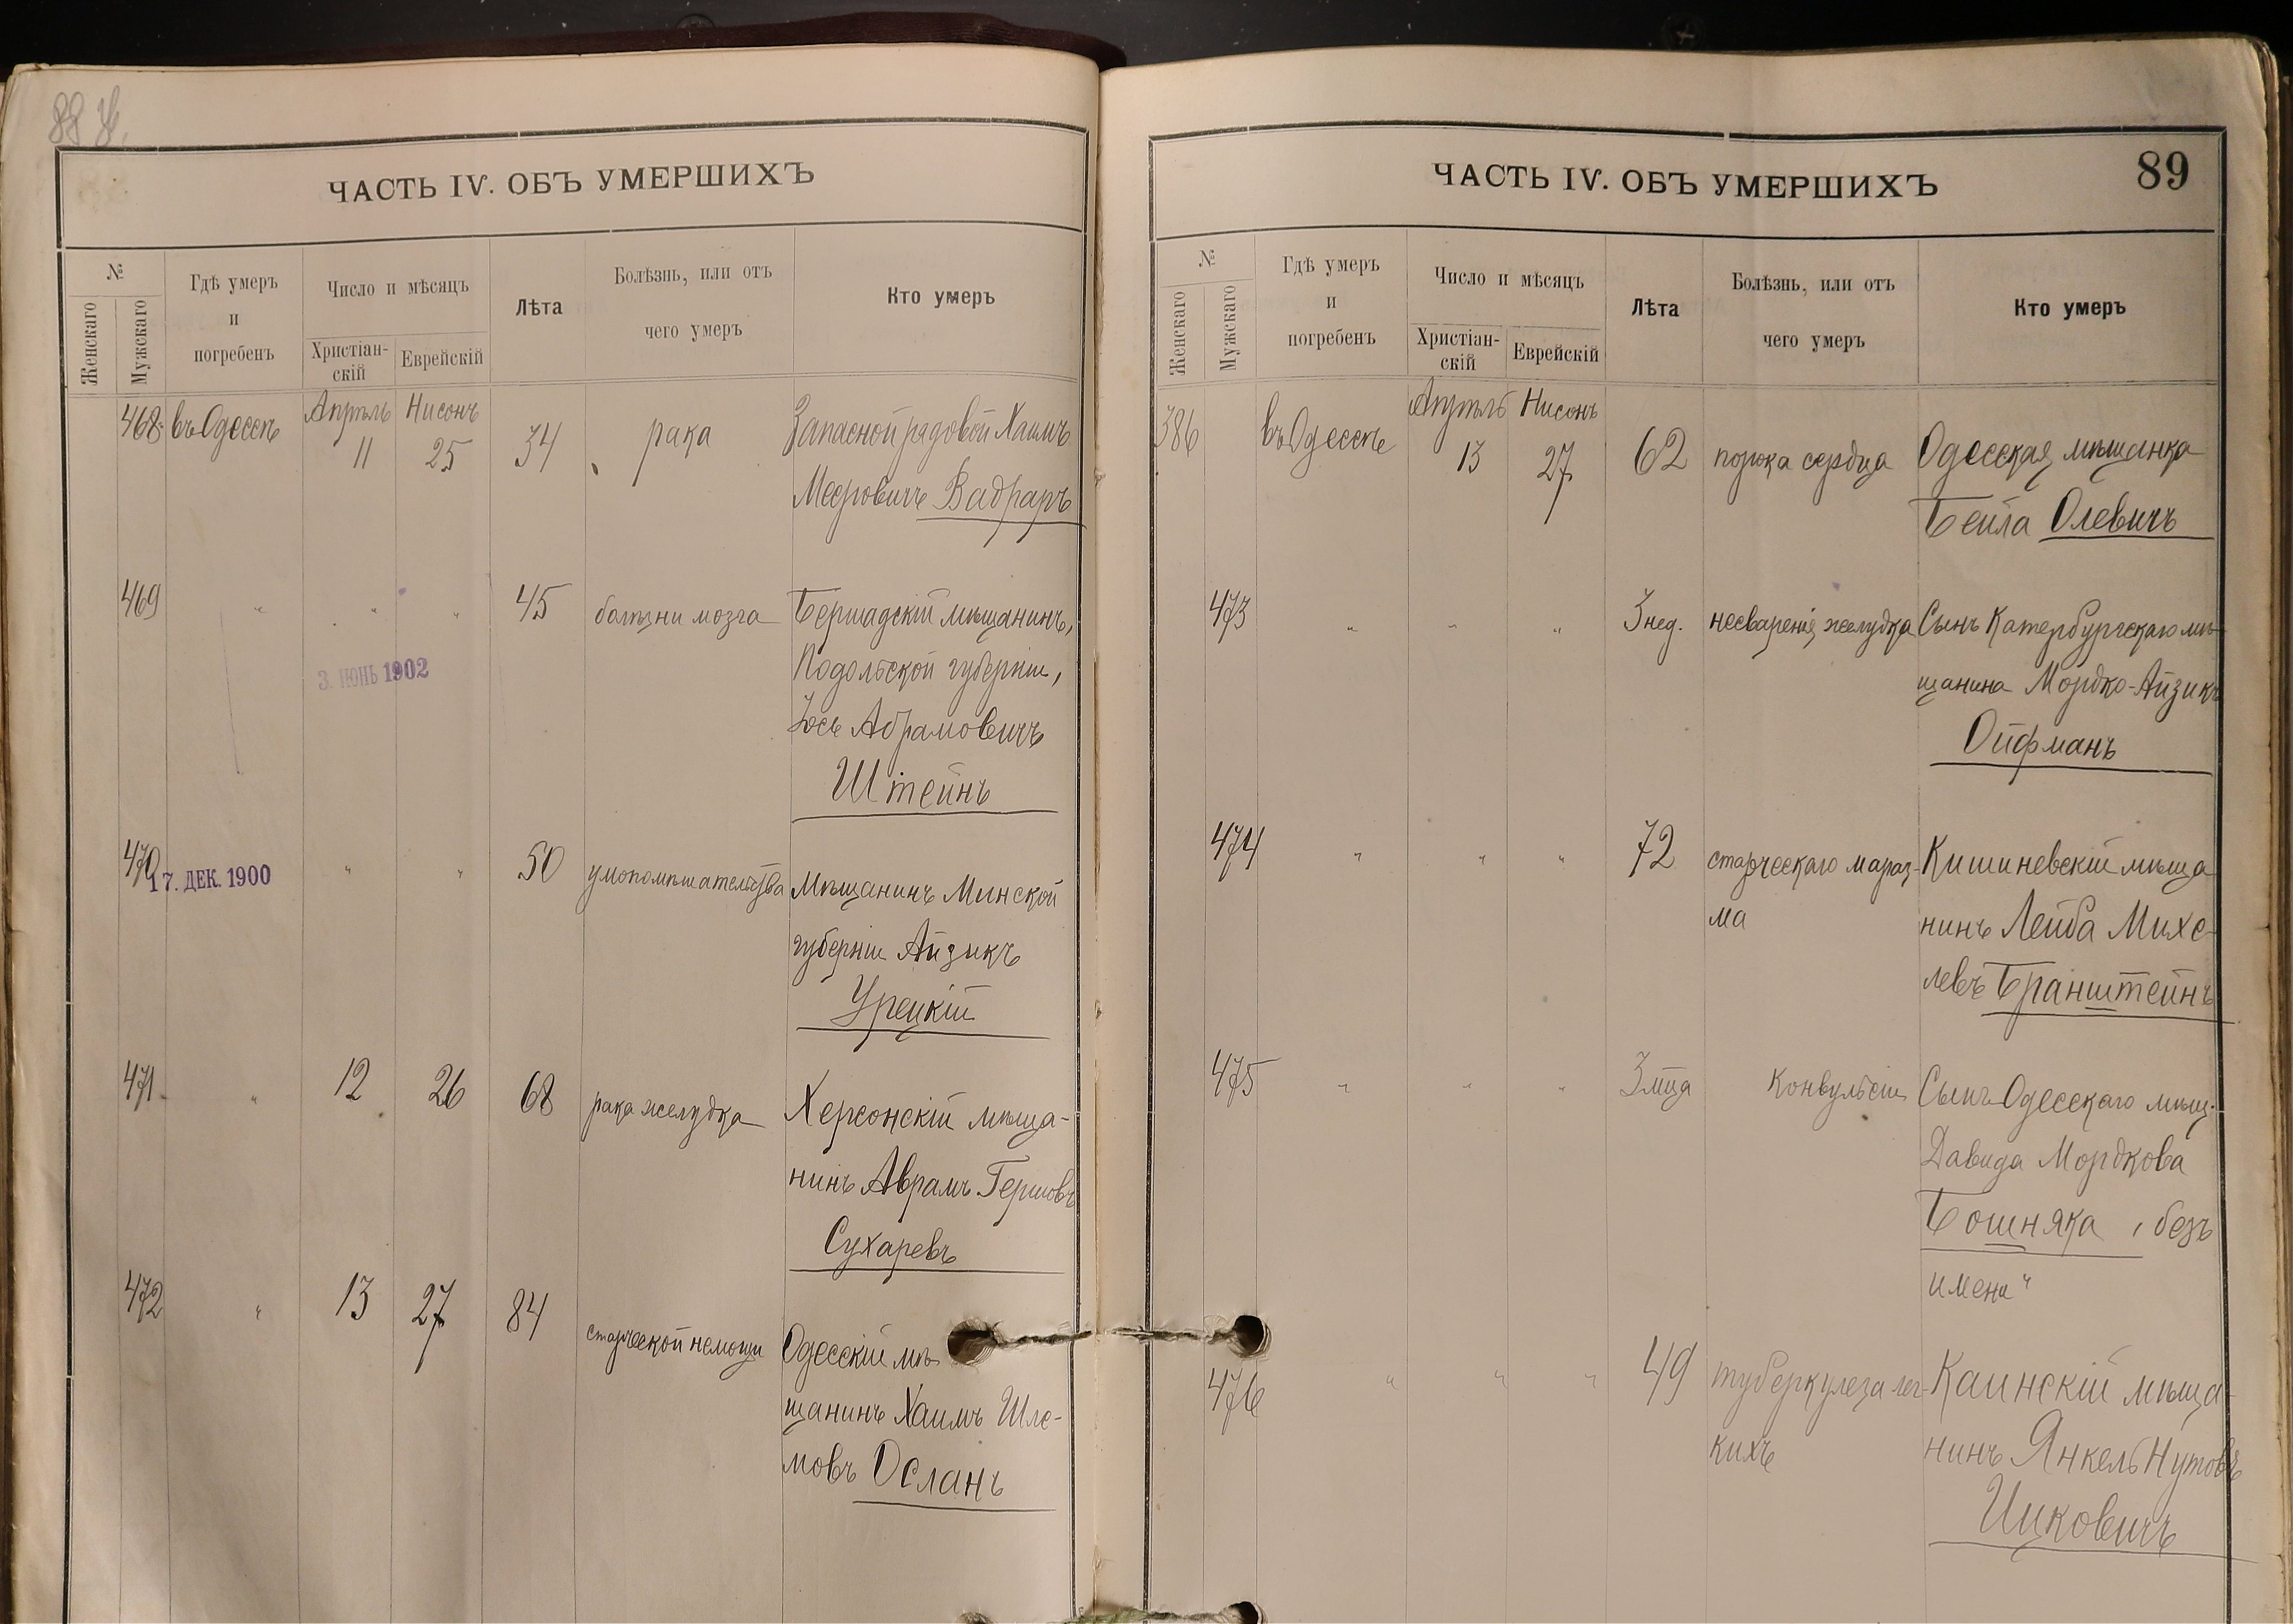 ЧАСТЬ IV. ОБЪ УМЕРШИХЪ
№
Женскаго
Мужскаго
Гдѣ умеръ
и
погребенъ
Число и мѣсяцъ
Христіан-
скій
Еврейскій
Лѣта
Болѣзнь, или отъ
чего умеръ
Кто умеръ
468. въ Одессѣ Апрѣль 11 Нисонъ 25 34 рака Запасной рядовой Хаимъ
Мееровичъ Вадраръ
469 " " " 45 болѣзни мозга Бершадскій мѣщанинъ,
Подольской губерніи,
Іось Абрамовичъ
Штейнъ
3. ІЮНЬ 1902
470 " " 50 умопомѣшательства Мѣщанинъ Минской
губерніи Айзикъ
Урецкій
17. ДЕК. 1900
471. " 12 26 68 рака желудка Херсонскій мѣща-
нинъ Аврамъ Гершовъ
Сухаревъ
472 " 13 27 84 старческой немощи Одесскій мѣ-
щанинъ Хаимъ Шле-
мовъ Осланъ
ЧАСТЬ IV. ОБЪ УМЕРШИХЪ
89
№
Женскаго
Мужскаго
Гдѣ умеръ
и
погребенъ
Число и мѣсяцъ
Христіан-
скій
Еврейскій
Лѣта
Болѣзнь, или отъ
чего умеръ
Кто умеръ
386 въ Одессѣ Апрѣль 13 Нисонъ 27 62 порока сердца Одесская мѣщанка
Бейла Олевичъ
473 " " " 3 нед. несваренія желудка Сынъ Катербургскаго мѣ-
щанина Мордко-Айзикъ
Ойфманъ
474 " " " 72 старческаго мараз- Кишиневскій мѣща
ма нинъ Лейба Михе-
левъ Бранштейнъ
475 " " " 3 мѣца Конвульсіи Сынъ Одесскаго мѣщ.
Давида Мордкова
Бошняка, "безъ
имена"
476 " " " 49 туберкулеза лег- Каинскій мѣща-
кихъ нинъ Янкель Нутовъ
Ицковичъ